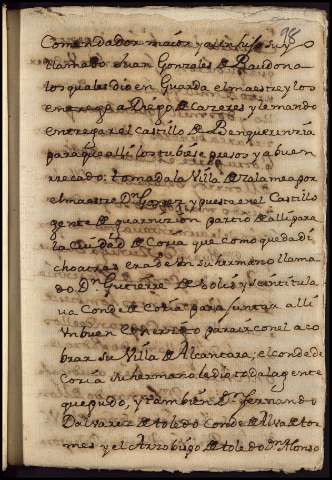 98
Comendador maior ya un hijo suyo
llamado Juan Gonzales de Raudona
los quales dio en Guarda el maestre y los
entrego a Diego de Cazeres y le mando
entregar el Castillo de Benquerenzia
para que alli los tubiese presos y a buen
recado; tomada la Villa de Zalamea por
el maestre Dn Gomez y puesto en el Castillo
gente de guarnizion partio de alli para
la Ciudad de Coria que como queda di
cho atras era de un su hermano llama
do Dn Gutierre de solis y se intitula
va Conde de Coria para juntar alli
vn buen exherzito para ir con el a co
brar su Villa de Alcantara; el conde de
Coria su hermano le dio toda la gente
que pudo, y tambien Dn Fernando
Dalvarez de toledo Conde de Alva de tor
mes y el Arzobispo de toledo Dn Alonso